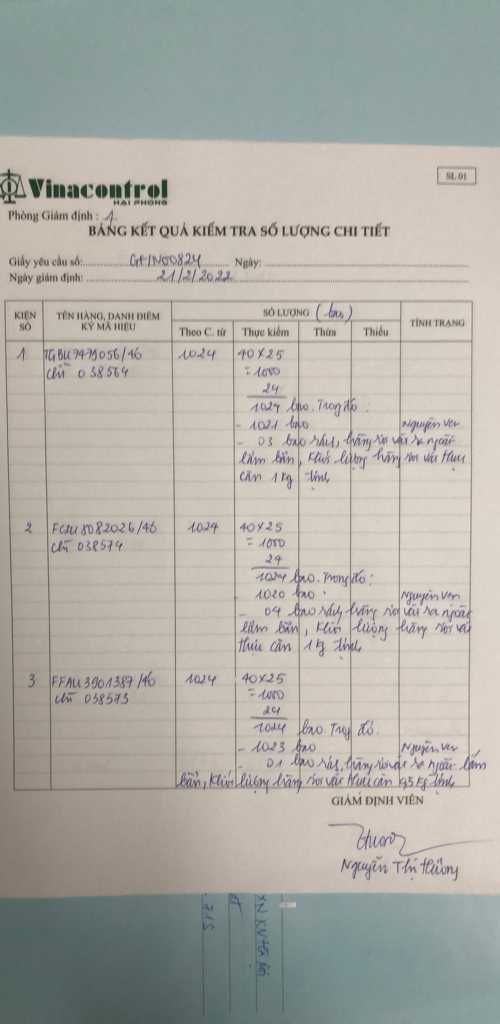 Vinacontrol
HAI PHONG
SL 01
Phòng Giám định : 1
BẢNG KẾT QUẢ KIỂM TRA SỐ LƯỢNG CHI TIẾT
Giấy yêu cầu số: Ngày:
Ngày giám định: 21/2/2022
KIỆN SỐ TÊN HÀNG, DANH ĐIỂM KÝ MÃ HIỆU SỐ LƯỢNG (bao) TÌNH TRẠNG
Theo C. từ Thực kiểm Thừa Thiếu
1 TGBU7479056/46 1024 40x25
chì 038564 = 1000
24
1024 bao. Trong đó :
- 1021 bao Nguyên vẹn
- 03 bao rách, hàng rơi vãi ra ngoài
lấm bẩn, khối lượng hàng rơi vãi thực
cân 1 kg tính
2 FCIU8082026/46 1024 40x25
chì 038574 = 1000
24
1024 bao. Trong đó :
1020 bao Nguyên vẹn
- 04 bao rách, hàng rơi vãi ra ngoài
lấm bẩn, khối lượng hàng rơi vãi
thực cân 1 kg tính
3 FFAU3901387/40 1024 40x25
chì 038573 = 1000
24
1024 bao. Trong đó.
- 1023 bao Nguyên vẹn
- 01 bao rách, hàng rơi vãi ra ngoài lấm
bẩn, khối lượng hàng rơi vãi thực cân 0,5 kg tính
GIÁM ĐỊNH VIÊN
Nguyễn Thị Hương
XN KNTĐ
215